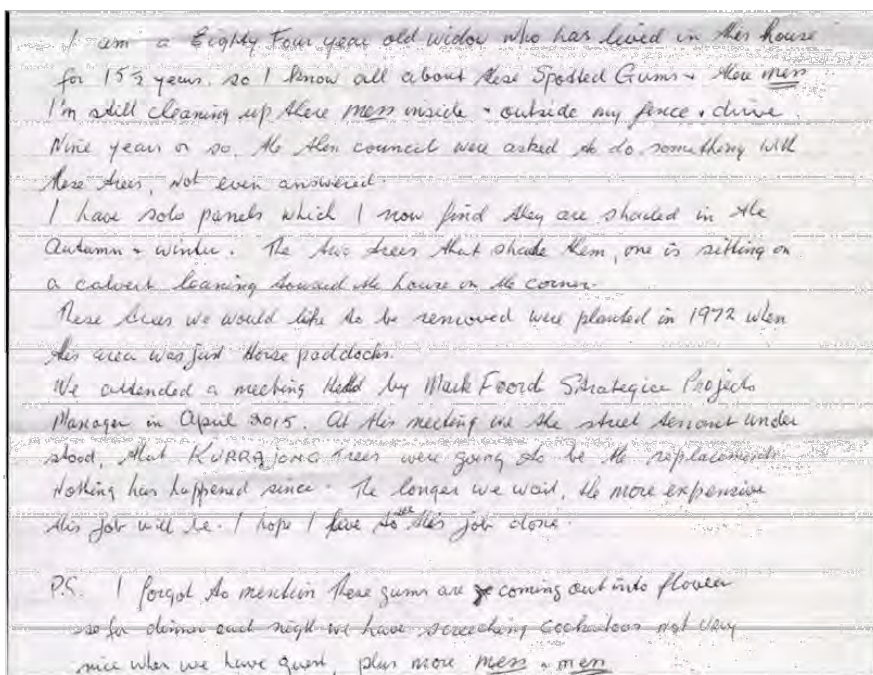 I am a Eighty Four year old widow who has lived in this house
for 15½ years. so I know all about these Spotted Gums + there mess
I'm still cleaning up there mess inside + outside my fence + drive
Nine years or so, the then council were asked to do something with
these trees, not even answered.
I have solo panels which I now find they are shaded in the
Autumn + winter. The two trees that shade them, one is sitting on
a calvert leaning toward the house on the corner.
These trees we would like to be removed were planted in 1972 when
this area was just Horse paddocks.
We attended a meeting Held by Mark Foord Strategice Projects
Manager in April 2015. At this meeting we the street under
stood, that KURRAJONG Trees were going to be the replacements
Nothing has happened since. The longer we wait, the more expensive
this job will be. I hope I live to see this job done.
P.S. I forgot to mention these gums are coming out into flower
so for dinner each night we have screeching Cockatoos not very
nice when we have guest, plus more mess + mess